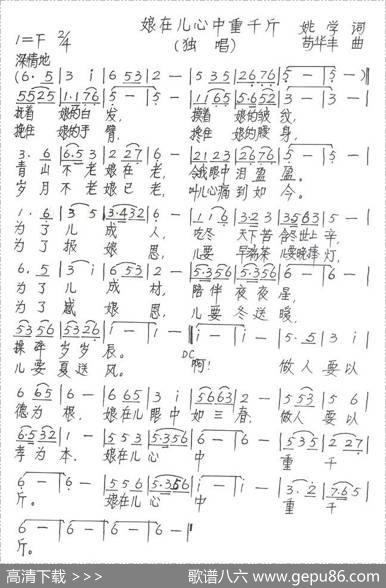 娘在儿心中重千斤
(独 唱)
姚 学 词
苟华丰 曲
1=F 2/4
深情地
(6· 5 | 3 i | 6 53 | 2 — | 5 35 | 2676 | 5 — | 5 — |)
5525 | 1·176 | 5 — | 5 — | 1165 | 5·652 | 3 — | 3 — |
抚着 娘的白 发, 摸着 娘的皱 纹,
挽住 娘的手 臂, 搀住 娘的腰 身,
3· 6 | 6·53 | 2 27 | 6 — | 2123 | 2676 | 5 — | 5 — |
青 山 不 老 娘 在 老, 令我眼中 泪 盈 盈。
岁 月 不 老 娘 已 老, 叫儿心痛 到 如 今。
1· 6 | 3 5 | 3·432 | 6 — |
为 了 儿 成 人,
为 了 报 娘 恩,
吃尽 天下苦
儿要
6· 5 | 3 i | 6 53 | 2 — | 5·356 | 5·356 | 6 — | 6 — |
为 了 儿 成 材, 陪伴 夜 夜 星,
为 了 感 娘 恩, 儿 要 冬 送 暖,
5356 | 5326 | i — | i — ‖ i — | i — | 5· 5 | 3 i |
操碎 岁 岁 辰。 DC 啊! 做 人 要 以
儿要 夏 送 风。
6 65 | 6 — | 6 65 | 3 i | 5663 | 2 — | 5 53 | 5 6 |
德为 根, 娘在 儿 眼中 如 三 春, 做人 要 以
6·532 | 1 — | 5 5 3 | 5·356 | 6 — | 6 — | 5 35 | 2 27 |
孝为 本, 娘在儿 心 中 重 千
6 — | 6 — | 5 5 6 | 5·356 | i — | i — | 3· 2 | 7·65 |
斤。 娘在儿 心 中 重 千
6 — | 6 — | 6 — | 6 — ‖
斤。
高清下载 >>>
歌谱八六 www.gepu86.com